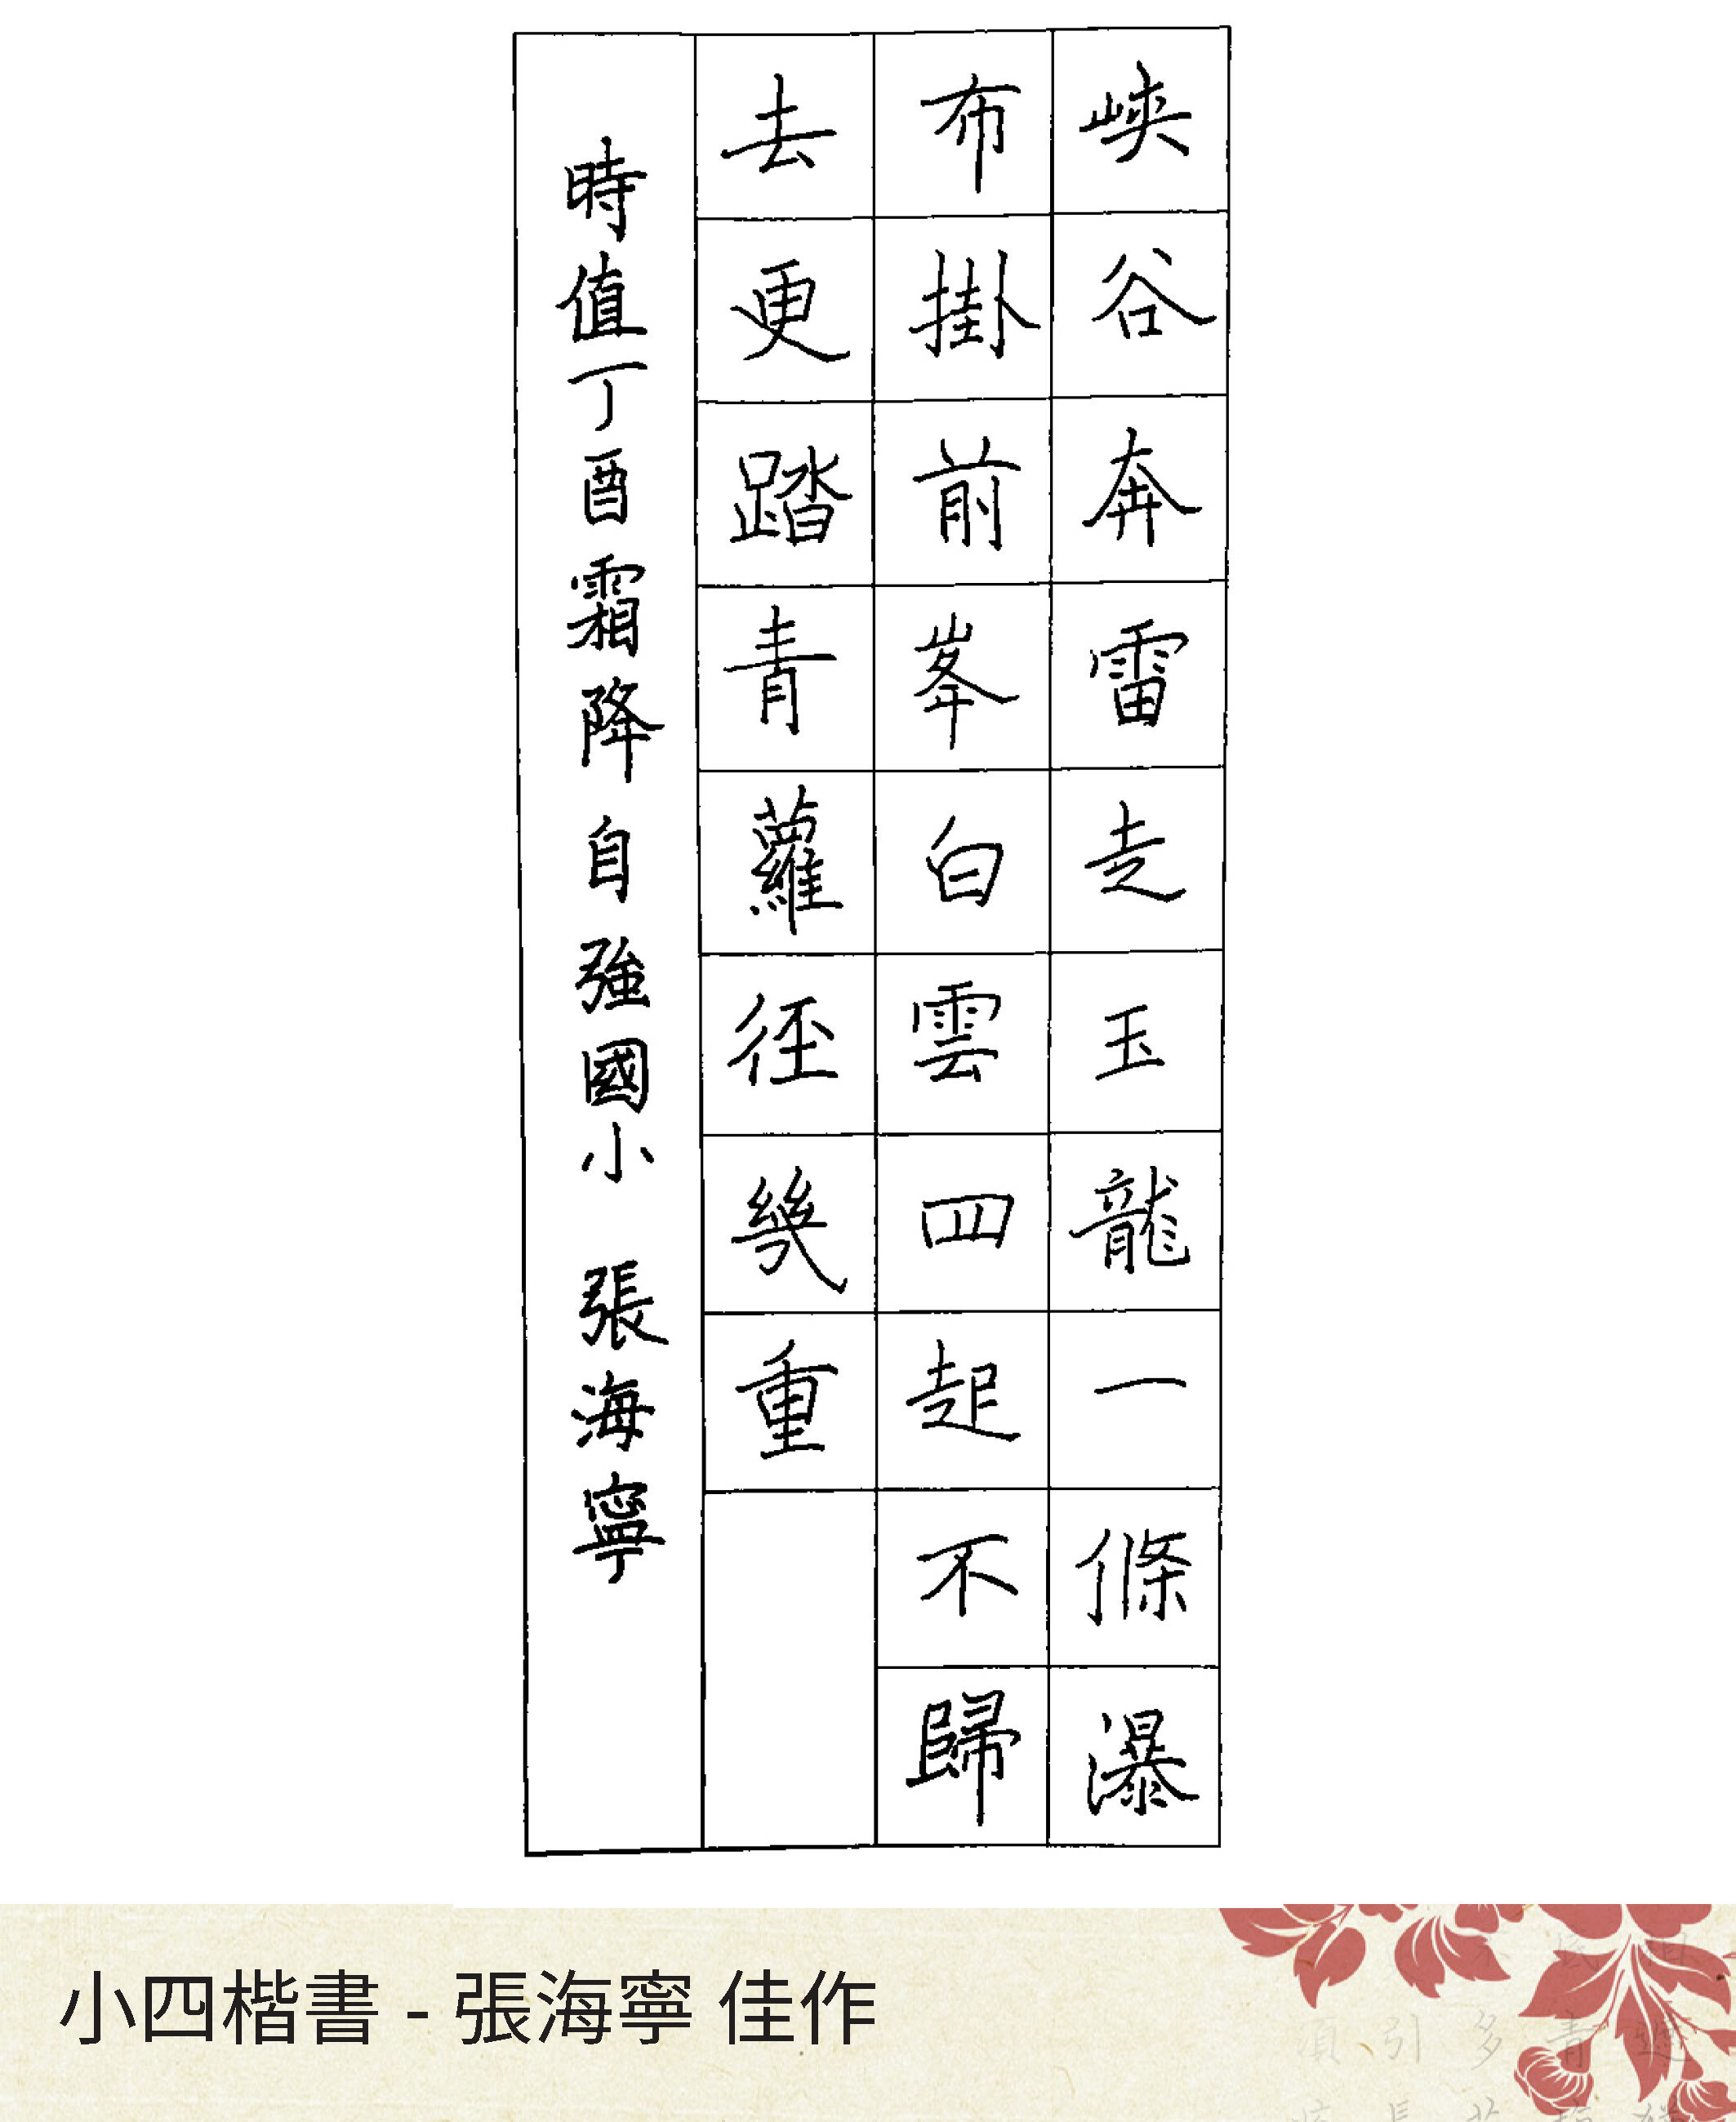 峽谷奔雷走玉龍一條瀑
布掛前峯白雲四起不歸
去更踏青蘿徑幾重
時值丁酉霜降自強國小 張海寧
小四楷書 - 張海寧 佳作